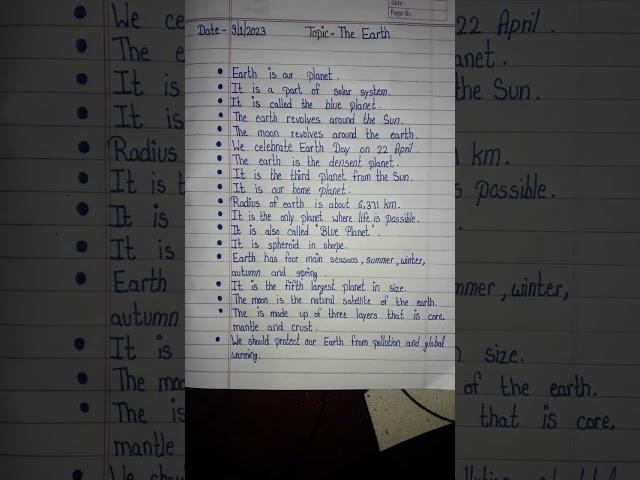 Date :
Page No.
Date - 9/1/2023 Topic - The Earth
• Earth is our planet.
• It is a part of solar system.
• It is called the blue planet.
• The earth revolves around the Sun.
• The moon revolves around the earth.
• We celebrate Earth Day on 22 April.
• The earth is the densent planet.
• It is the third planet from the Sun.
• It is our home planet.
• Radius of earth is about 6,371 km.
• It is the only planet where life is possible.
• It is also called "Blue Planet".
• It is spheroid in shape.
• Earth has four main seasons, summer, winter,
autumn and spring.
• It is the fifth largest planet in size.
• The moon is the natural satellite of the earth.
• The is made up of three layers that is core,
mantle and crust.
• We should protect our Earth from pollution and global
warming.